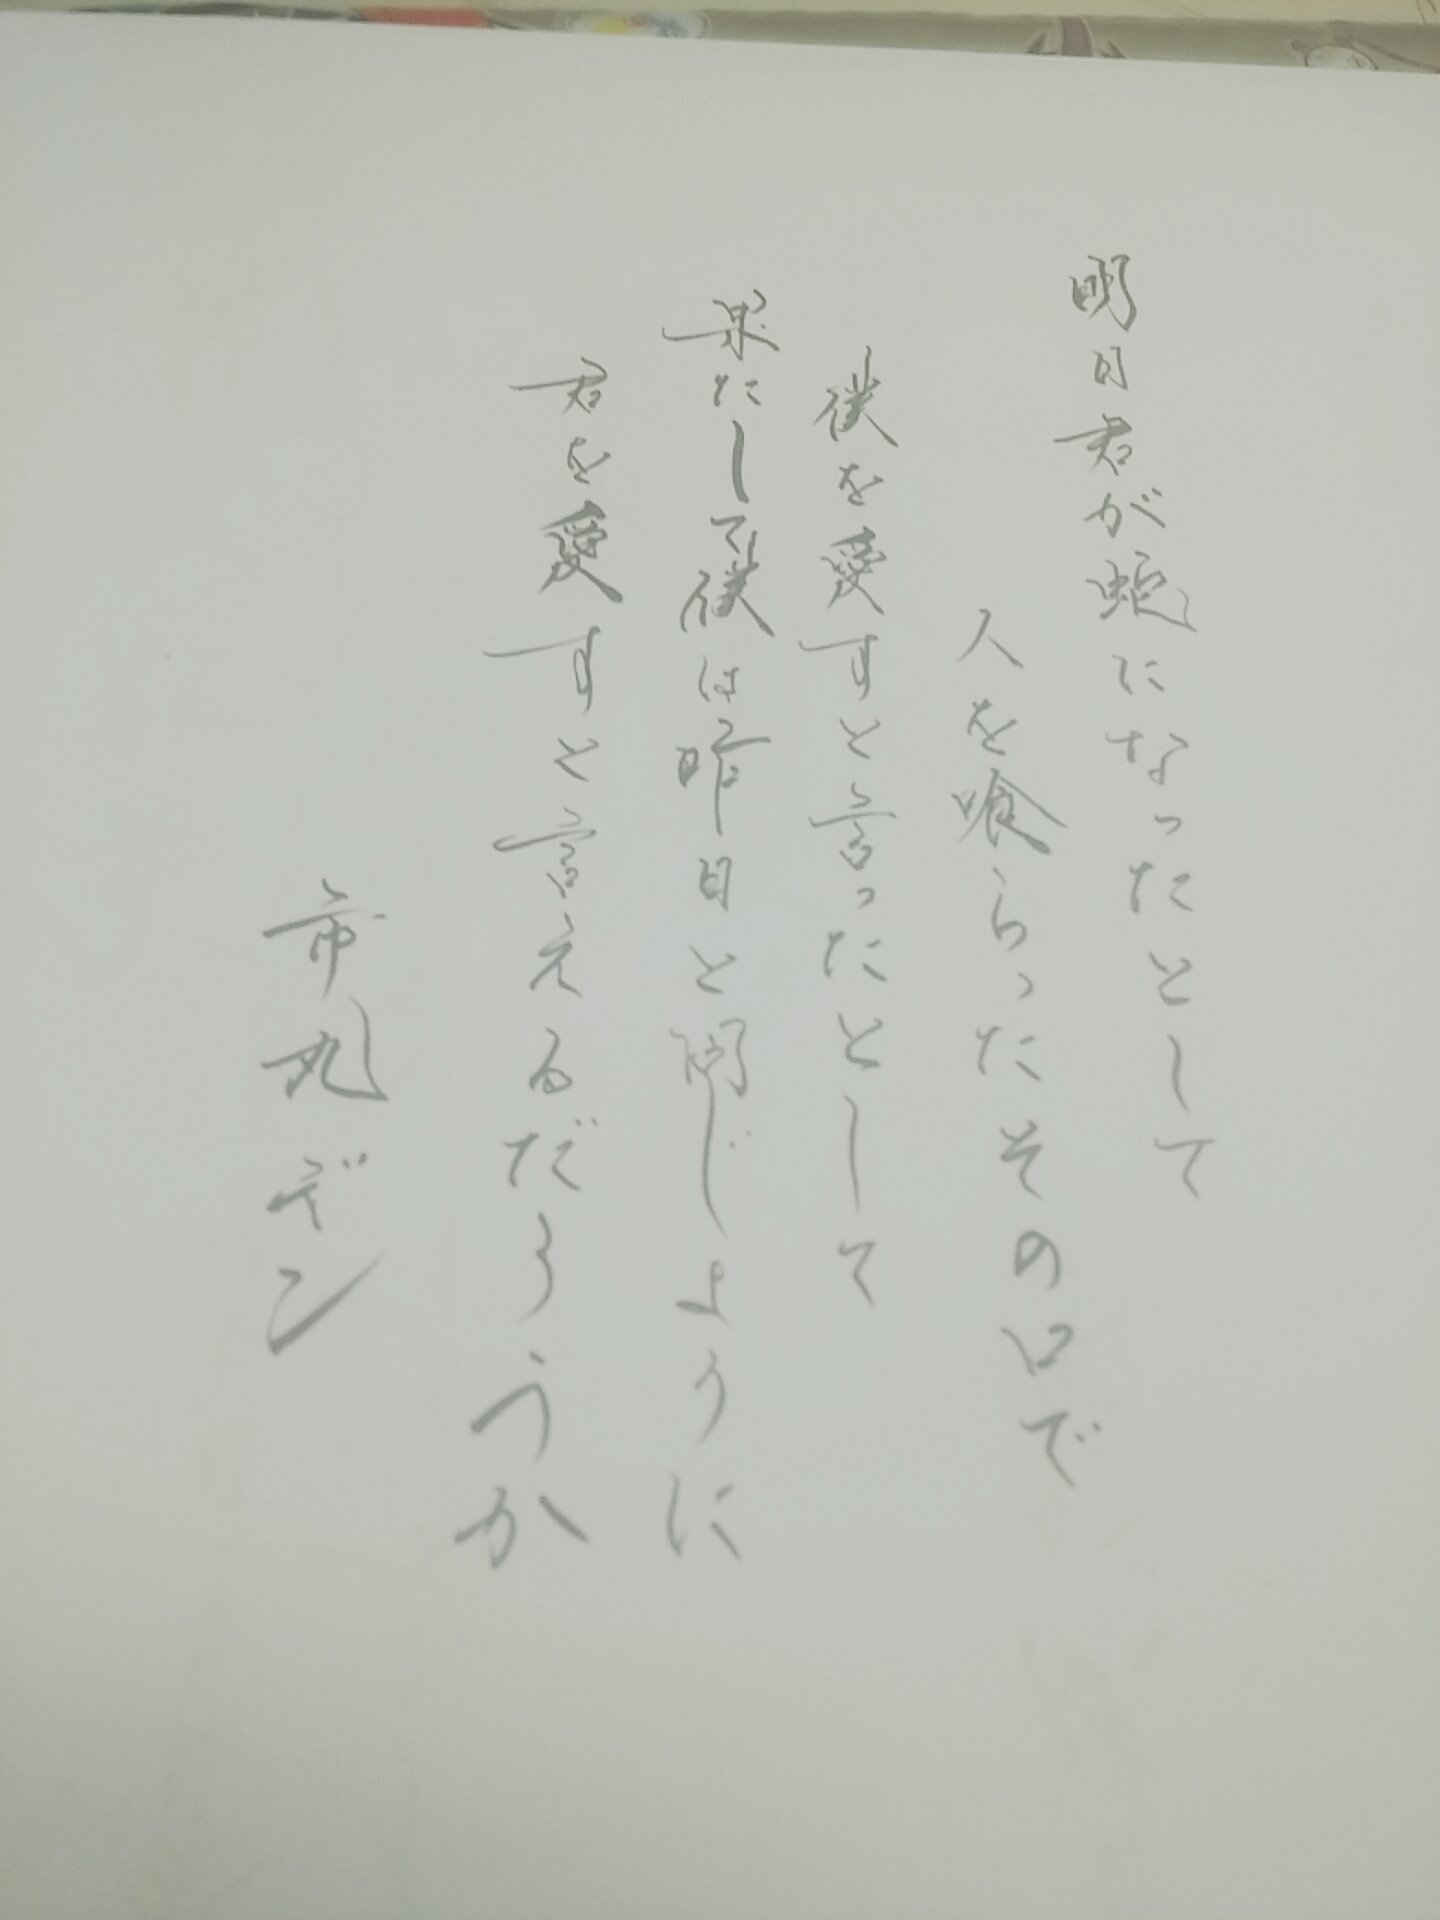 明日君が蛇になったとして
人を喰らったその口で
僕を愛すと言ったとして
果たして僕は昨日と同じように
君を愛すと言えるだろうか
市丸ギン